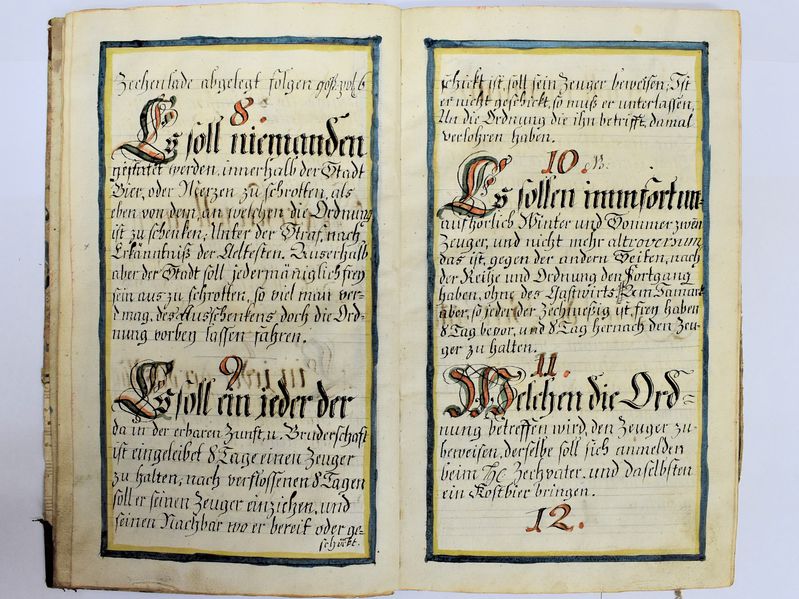 Zechenlade abgelegt folgen
8.
Es soll niemanden
gestatet werden, innerhalb der Stadt
Bier, oder Merzen zu schrotten, als
eben von dem, an welchen die Ordnung
ist zu schenken; Unter der Straf, nach
Erkänntniß der Aeltesten. Auserhalb
aber der Stadt soll jedermäniglich frey
sein aus zu schrotten, so viel man ver-
d mag, des Ausschenkens doch die Ord-
nung vorbey lassen fahren.
9
Es soll ein jeder der
da in der erbaren Zunft, u. Bruderschaft
ist eingeleibet 8 Tage einen Zeuger
zu halten, nach verflossenen 8 Tagen
soll er seinen Zeuger einziehen, und
seinen Nachbar wo er bereit oder ge-
schickt.
schickt ist, soll sein Zeuger beweisen; Ist
er nicht geschickt, so muß er unterlassen,
An die Ordnung die ihn betrifft, damal
verlohren haben.
10. NB.
Es sollen immfortun-
aufhörlich Winter und Sommer zwen
Zeuger, und nicht mehr altroversum,
das ist, gegen der andern Seiten, nach
der Reihe und Ordnung den Fortgang
haben, ohne des Gastwirts
aber, so jeder der Zechmeßig ist, frey haben
8 Tag bevor, und 8 Tag hernach den Zeu-
ger zu halten.
11.
Welchen die Ord-
nung betreffen wird, den Zeuger zu-
beweisen, derselbe soll sich anmelden
beim Zechvater, und daselbsten
ein Kostbier bringen.
12.